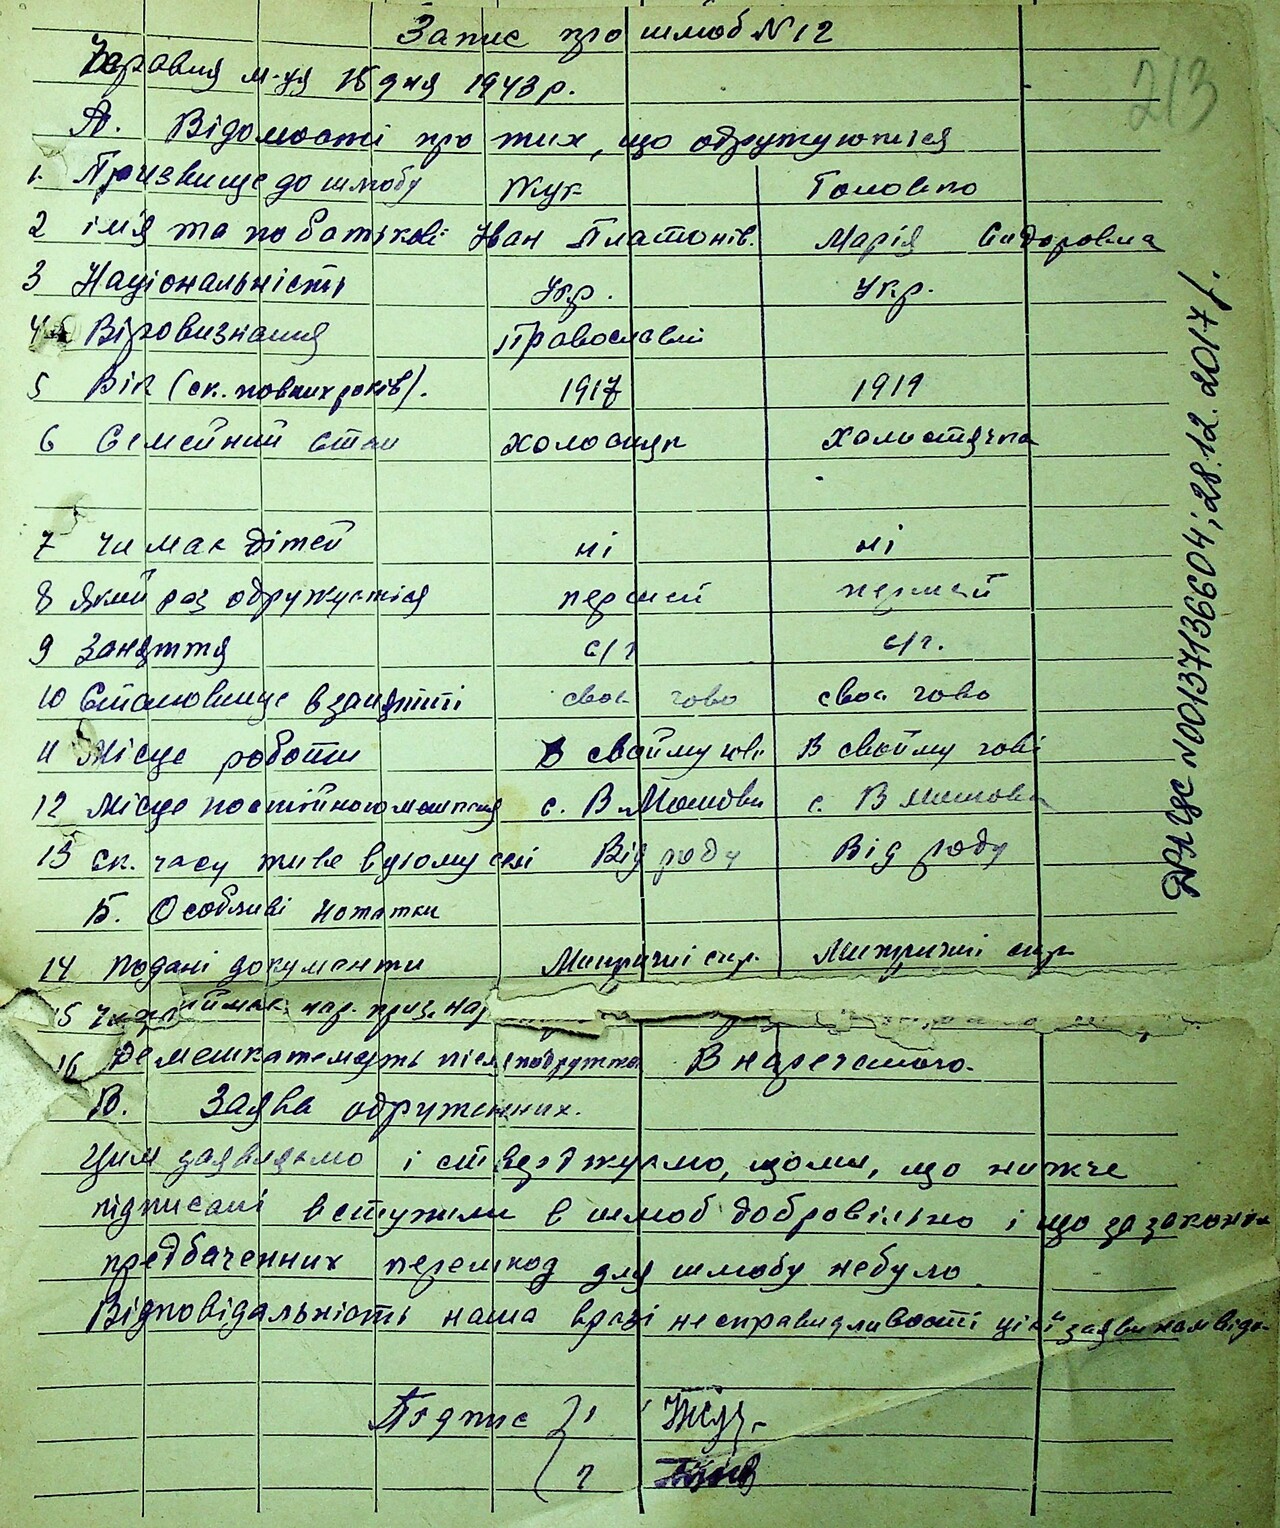 Запис про шлюб № 12
Червня м-ця 15 дня 1943 р.
213
А. Відомості про тих, що одружуються
1. Призвище до шлюбу Жук Головко
2 імя та по батькові Іван Платонів. Марія Сидоровна
3 Національність Укр. Укр.
4 Віровизнання Православні
5 Вік (ск. повних років). 1917 1919
6 Семейний стан холостяк холостячка
7 Чи має дітей ні ні
8 Який раз одружується перший перший
9 Заняття с/г с/г.
10 Становище в занятті своє госо своє госо
11 Місце роботи В свойму госі В свойму госі
12 Місце постійного мешкання с. В с. В
13 ск. часу живе в цьому селі Від роду Від роду
Б. Особливі нотатки
14 подані документи Метричні спр. Метричні спр.
15 нар. приз. нар
16 Де мешкатемуть після подружжа В нареченого.
В. Заява одружених.
Цим заявляємо і стверджуємо, що ми, що нижче
підписані вступили в шлюб добровільно і що за законом
предбаченних перешкод для шлюбу небуло.
Відповідальність наша в разі несправидливості цієї заяви нам відо.
Підпис 1 Жук
2
ДРАЦС №00137136604; 28.12.2017р.